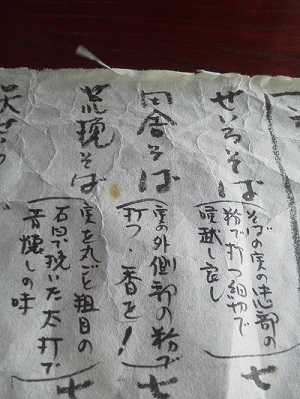 せいろそば
(そばの実の中心部の
粉で打つ細切で
喉越し良し
七
田舎そば
(実の外側部の粉で
打つ・香を!
七
荒挽そば
(実を丸ごと粗目の
石臼で挽いた太打で
昔懐しの味
七
天せいろ